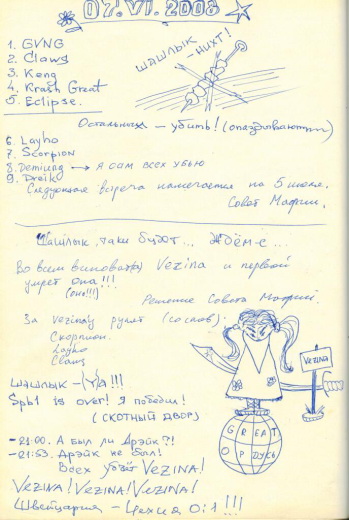 07.VI.2008
1. GVNG
2. Claws
3. Keng
4. Krash Great
5. Eclipse.
ШАШЛЫК - НИХТ!
Остальных — убить! (опаздывают)
6. Layho
7. Scorpion
8. Deming → А сам всех убью
9. Dreik
Следующая встреча намечается на 5 июля.
Совет Мафии.
Шашлык таки будет... Ждём-с...
Во всём виноват(а) Vezina и первой
умрёт она!!!
(оне!!!)
Решение Совета Мафии.
За Vezinaу рулят (сослов):
Скорпион
Layho
Claws
VEZINA
Шашлык - (Y)A!!!
Spb1 is over! Я победил!
(СКОТНЫЙ ДВОР)
GREAT
ОРДУСЬ
- 21:00. А был ли Дрэйк?!
- 21:53. Дрэйк не был!
Всех убьёт VEZINA!
VEZINA! VEZINA! VEZINA!
Швейцария - Чехия 0:1!!!